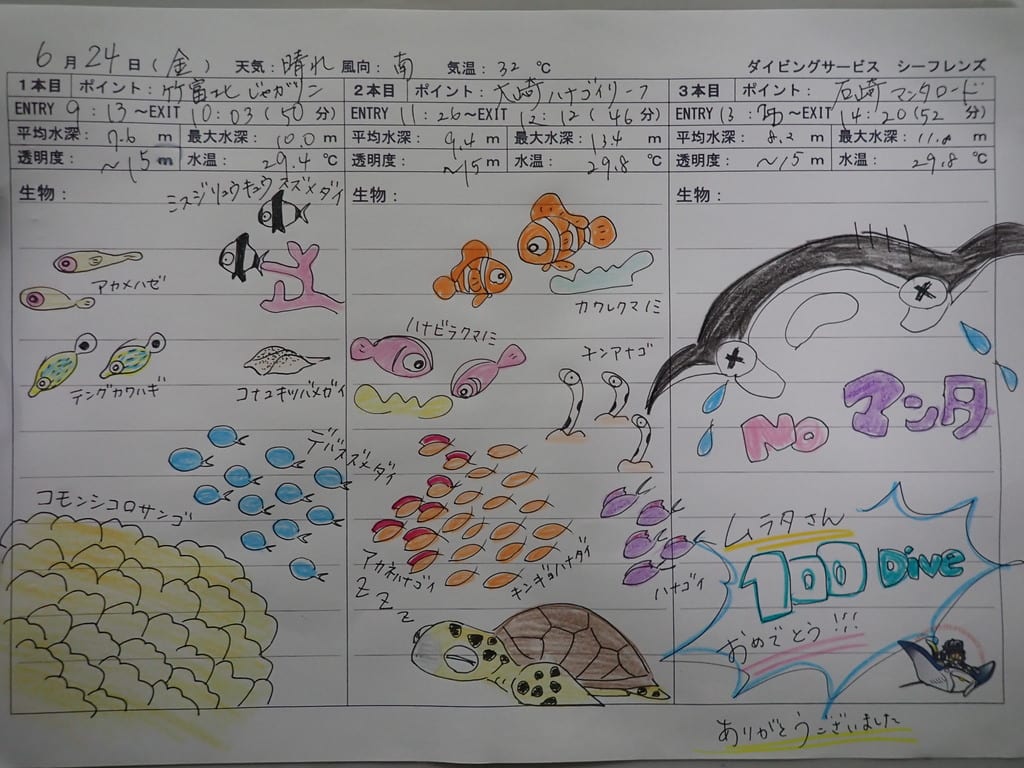 6月24日(金) 天気:晴れ 風向:南 気温:32℃ ダイビングサービス シーフレンズ
1本目 ポイント:竹富北 じゃがリン
ENTRY 9:13~EXIT 10:03(50分)
平均水深:7.6m 最大水深:10.0m
透明度:~15m 水温:29.4℃
生物:
ミスジリュウキュウスズメダイ
アカメハゼ
テングカワハギ
コナユキツバメガイ
デバスズメダイ
コモンシコロサンゴ
2本目 ポイント:大崎ハナゴイリーフ
ENTRY 11:26~EXIT 12:12(46分)
平均水深:9.4m 最大水深:13.4m
透明度:~15m 水温:29.8℃
生物:
カクレクマノミ
ハナビラクマノミ
チンアナゴ
アカネハナゴイ
キンギョハナダイ
ハナゴイ
Z Z Z
3本目 ポイント:石崎 マンタロード
ENTRY 13: ~EXIT 14:20(52分)
平均水深:8.2m 最大水深:11.8m
透明度:~15m 水温:29.8℃
生物:
No マンタ
ムラタさん
100 Dive
おめでとう!!!
ありがとうございました